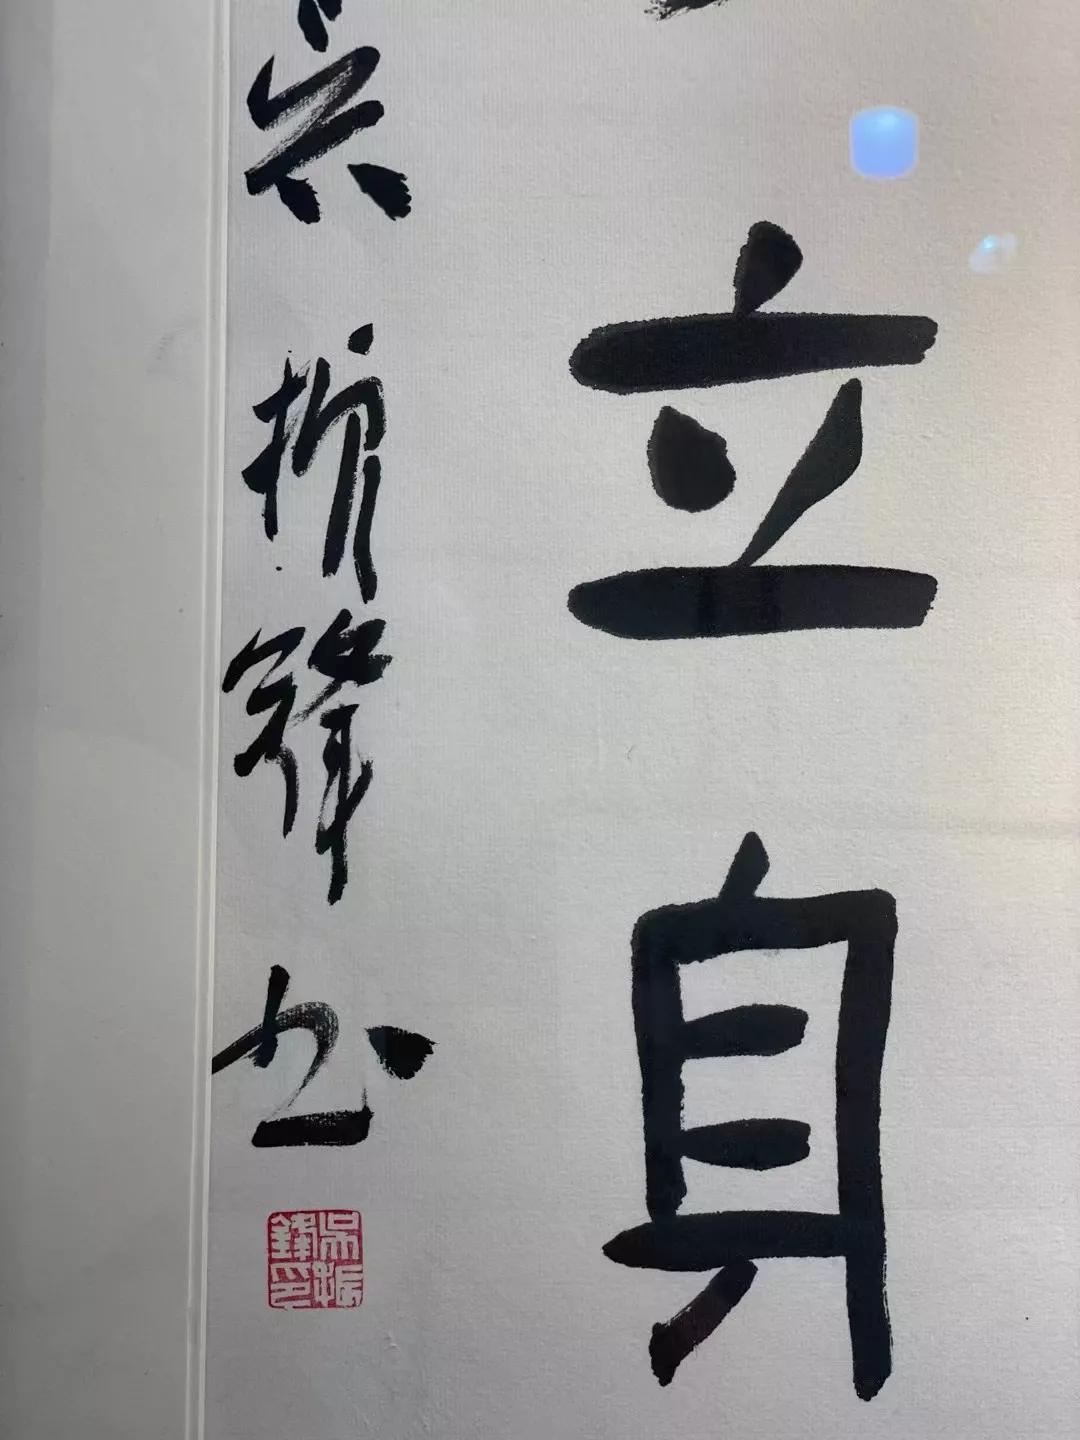 立身
吴振锋书
吴振鋒印